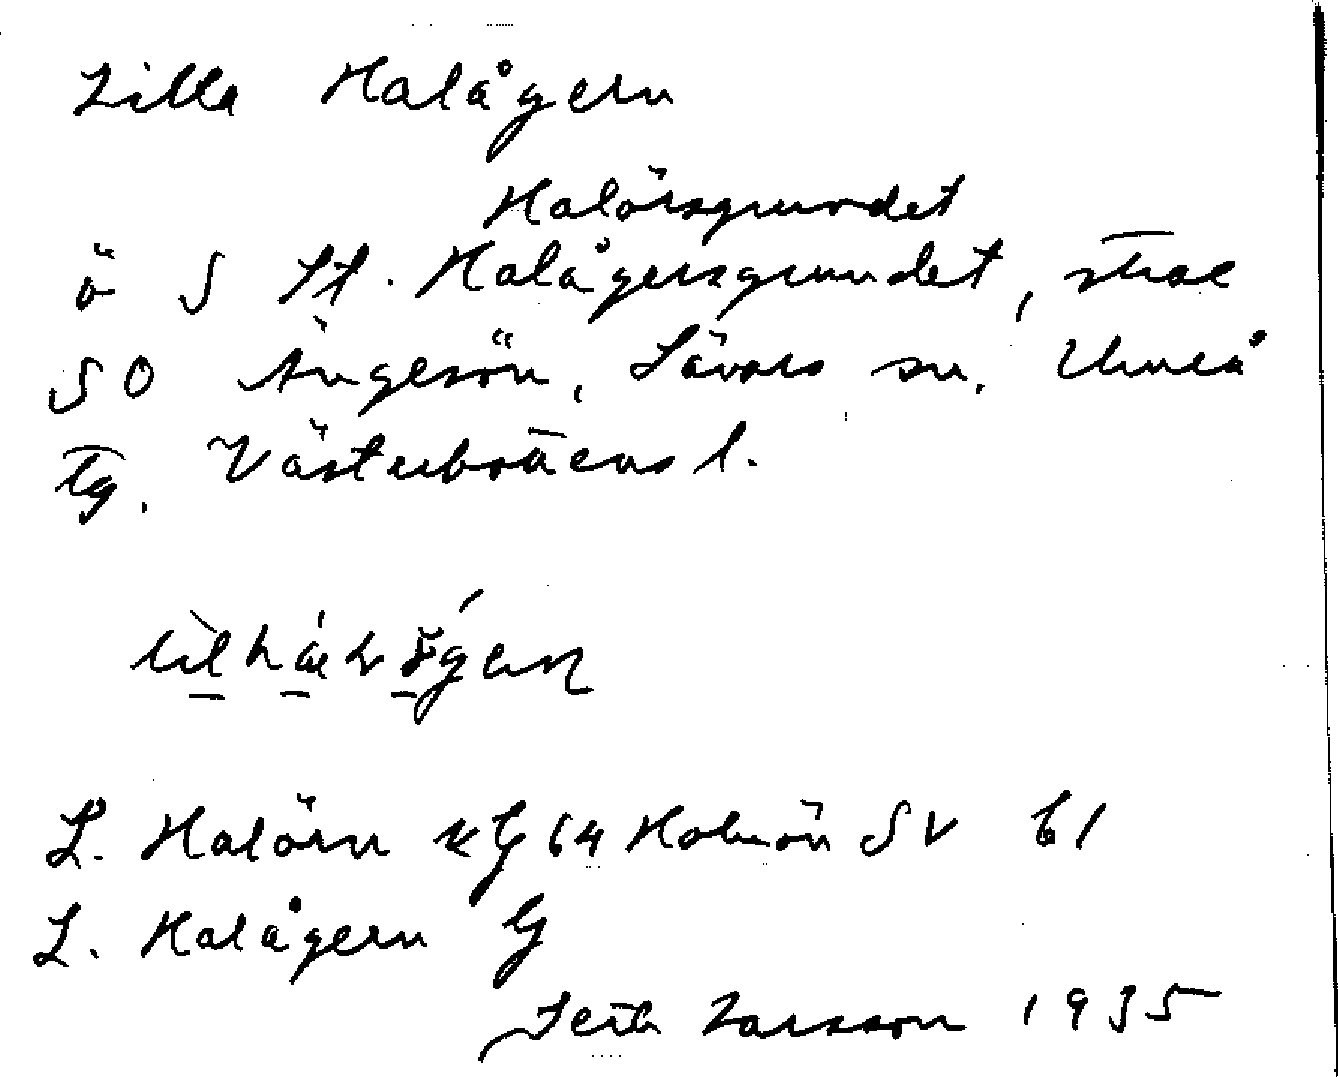 Lilla Halågern
Halörsgrundet
ö S St. Halågersgrundet, strax
SO Ängesön, Sävars sn, Umeå
tg. Västerbottens l.
L. Halörn kG 64 Holmön SV b1
L. Halågern G
Seth Larsson 1935